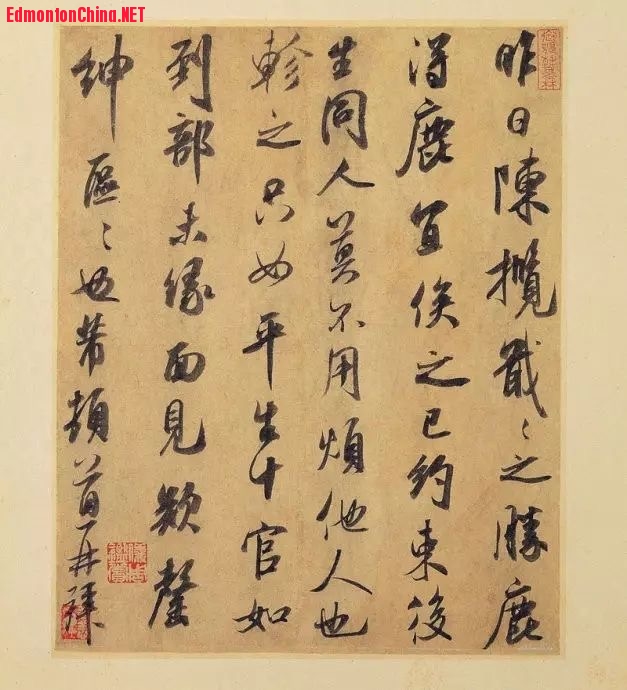 EdmontonChina.NET
昨日陳攬戢戢之勝鹿
得鹿宜俟之已約束後
生同人莫不用煩他人也
軫之只如平生十官如
到部未緣面見欵罄
紳區區也芾頓首再拜